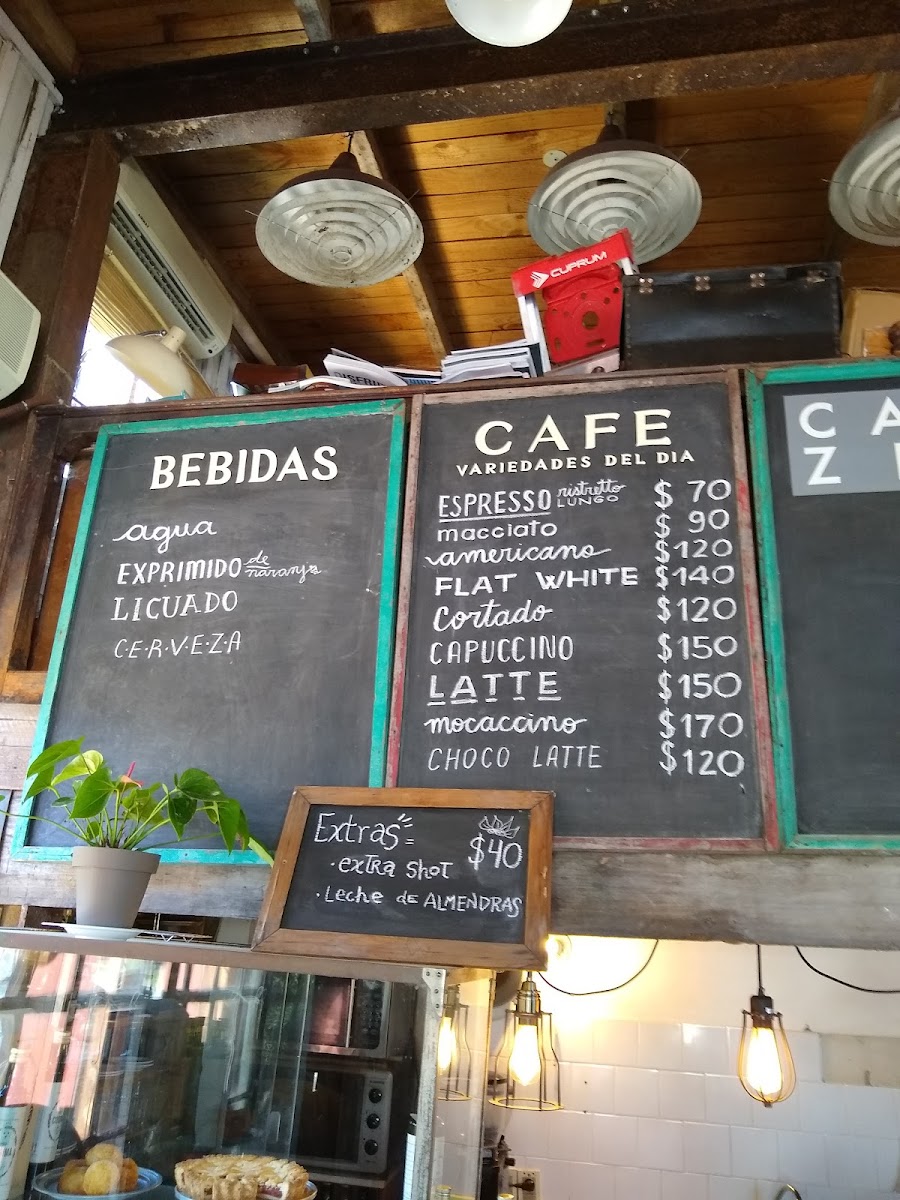 CUPRUM
BEBIDAS
agua
EXPRIMIDO de naranja
LICUADO
C·E·R·V·E·Z·A
CAFE
VARIEDADES DEL DIA
ESPRESSO ristretto LUNGO $ 70
macciato $ 90
americano $120
FLAT WHITE $140
Cortado $120
CAPUCCINO $150
LATTE $150
mocaccino $170
CHOCO LATTE $120
C A
Z
Extras = $40
· extra shot
· Leche de ALMENDRAS